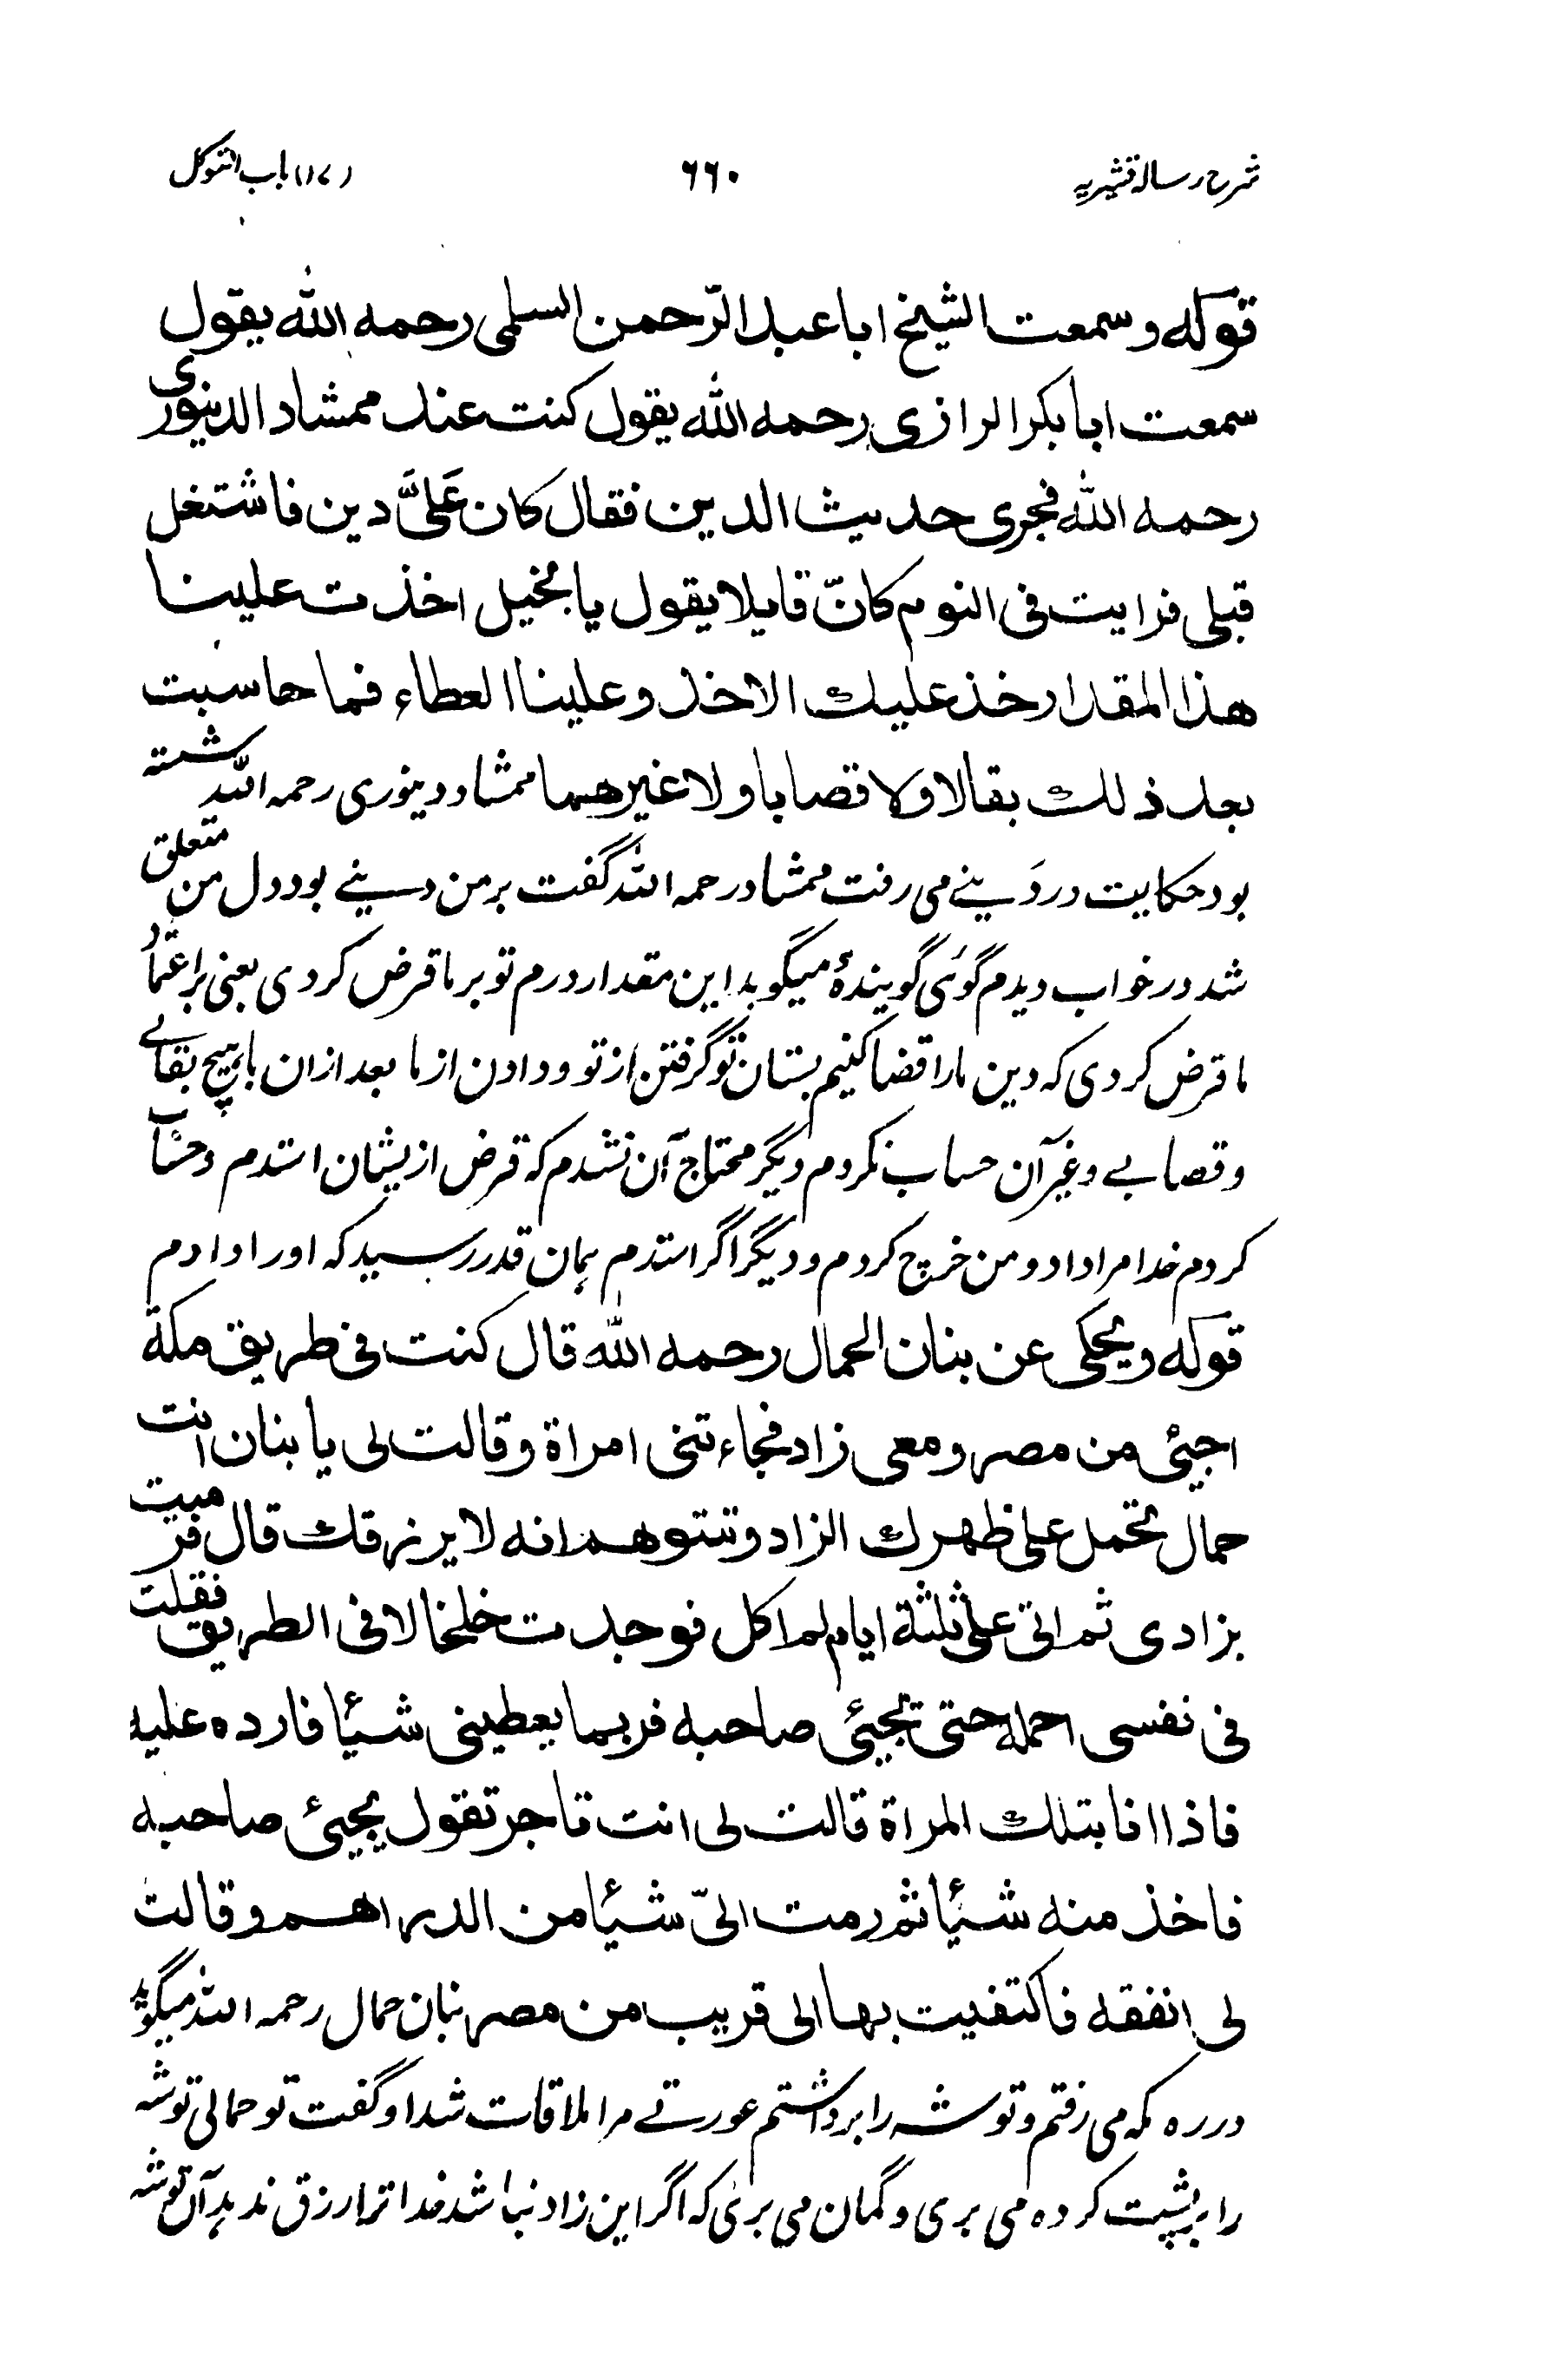 شرح رسالہ قشیریہ ۶۶۰ (۱۷) باب التوکل
قوله وسمعت الشیخ ابا عبد الرّحمن السلمی رحمه الله یقول
سمعت ابا بکر الرازی رحمه الله یقول کنت عند ممشاد الدینوری
رحمه الله فجری حدیث الدین فقال کان عَلَیَّ دین فاشتغل
قبلی فرایت فی النوم کانّ قایلا یقول یا بخیل اخذت علینا
هذا المقدار خذ علیک الاخذ و علینا العطاء فما حاسبت
بعد ذلک بقالا ولا قصابا ولا غیرهما ممشاد دینوری رحمه الله نشسته
بود حکایت در دَینے می رفت ممشاد رحمه الله گفت بر من دینے بود دل من متعلق
شد در خواب دیدم گوئی گویندۀ میگوید این مقدار درم تو بر ما قرض کردی یعنی بر اعتماد
ما قرض کردی که دین ما را قضا کنیم بستان تو گرفتن از تو و دادن از ما بعد ازان با هیچ بقالے
و قصابے و غیر آن حساب نکردم دیگر محتاج آن نشدم که قرض از یشان استدم و حساب
کردم خدا مرا داد و من خرچ کردم و دیگر اگر استدم همان قدر رسید که او را دادم
قوله ویحکی عن بنان الحمال رحمه الله قال کنت فی طریق مکة
اجیئ من مصر ومعی زاد فجاءتنی امراة وقالت لی یا بنان انت
حمال تحمل علی ظهرک الزاد وتتوهم انه لا یرزقک قال فرمیت
بزادی ثم اتی علیّ ثلثة ایام لم اکل فوجدت خلخالا فی الطریق فقلت
فی نفسی احمله حتی یجیئ صاحبه فربما یعطینی شیئا فارده علیه
فاذا انا بتلک المراة قالت لی انت تاجر تقول یجیئ صاحبه
فاخذ منه شیئا ثم رمت الیّ شیئا من الدراهم وقالت
لی انفقه فاکتفیت بها الی قریب من مصر بنان حمال رحمه الله میگوید
در ره مکه می رفتم و توشه را برداشتم عورتے مرا ملاقات شد او گفت تو حمالی توشه
را بر پشت کرده می بری و گمان می بری که اگر این زاد نباشد خدا ترا رزق ندهد آن توشه